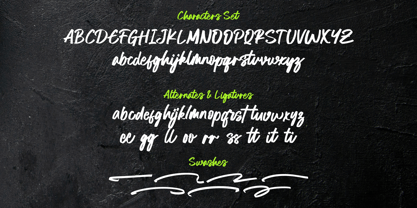 Characters Set
ABCDEFGHIJKLMNOPQRSTUVWXYZ
abcdefghijklmnopqrstuvwxyz
Alternates & Ligatures
abcdefghijklmnopqrstuvwxyz
ee gg ll oo rr ss tt it ti
Swashes